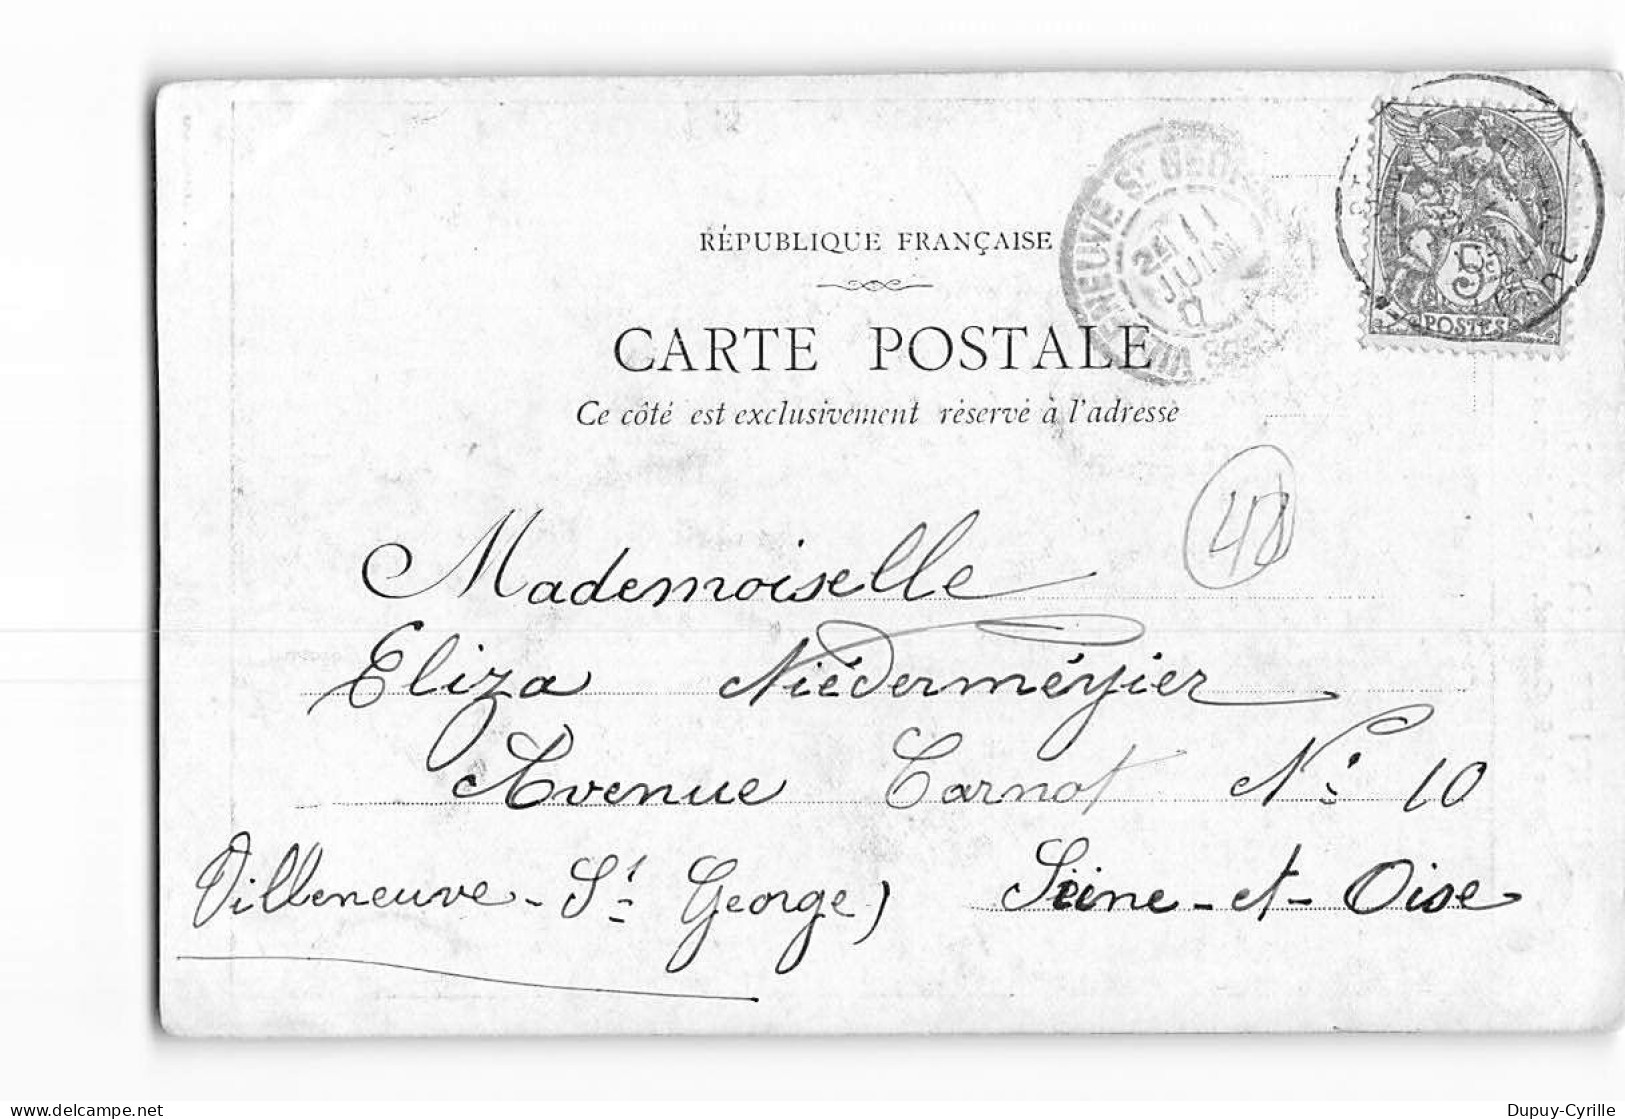 RÉPUBLIQUE FRANÇAISE
CARTE POSTALE
Ce côté est exclusivement réservé à l'adresse
NEUVE ST GEOR
11
JUIN
5c
POSTES
48
Mademoiselle
Eliza Niédermeÿier
Avenue Carnot N° 10
Villeneuve-St George) Seine-et-Oise
delcampe.net
Dupuy-Cyrille